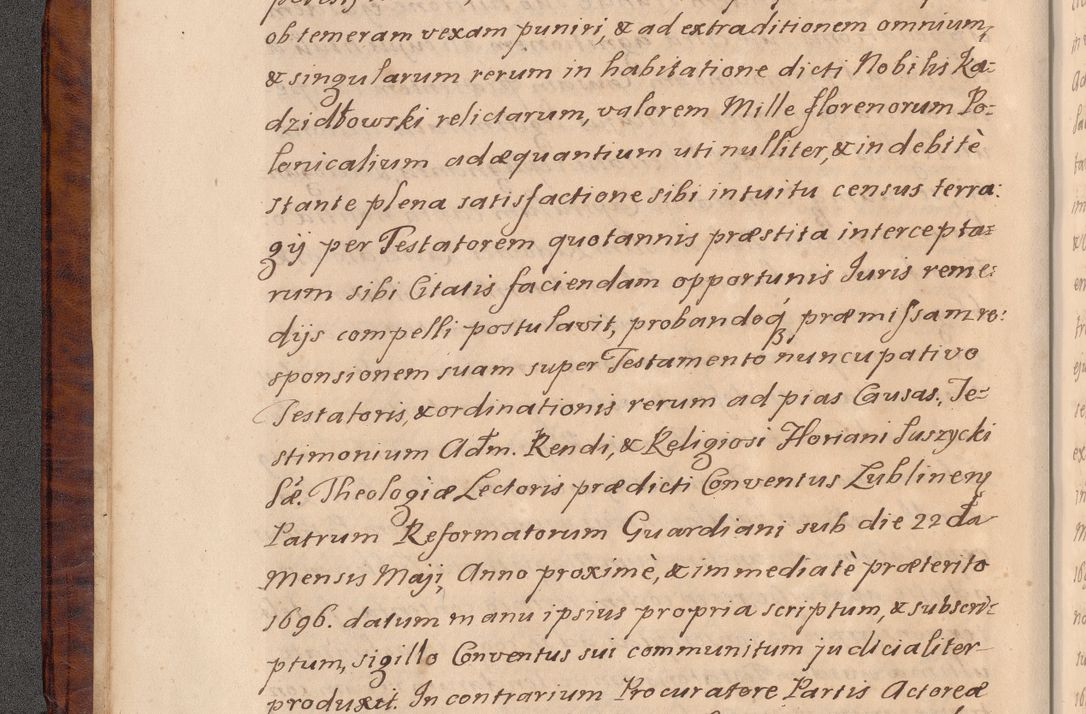 ob temeram vexam puniri, & ad extraditionem omnium,
& singularum rerum in habitatione dicti Nobilis Ka=
dzidłowski relictarum, valorem Mille florenorum Po=
lonicalium adæquantium uti nulliter, & indebitè
stante plena satisfactione sibi intuitu census terra=
gij per Testatorem quotannis præstita intercepta=
rum sibi Citatis faciendam opportunis Iuris reme=
dijs compelli postulavit, probandoq́ præmissam re=
sponsionem suam super Testamento nuncupativo
Testatoris, & ordinationis rerum ad pias Causas, Te=
stimonium Adm. Rendi, & Religiosi Floriani Suszycki
Sæ. Theologiæ Lectoris prædicti Conventus Lublinen̄
Patrum Reformatorum Guardiani sub die 22da
Mensis Maÿ, Anno proximè, & immediatè præterito
1696. datum manu ipsius propria scriptum, & subscri=
ptum, sigillo Conventus sui communitum judicialiter
produxit. In contrarium Procuratore Partis Actoreæ